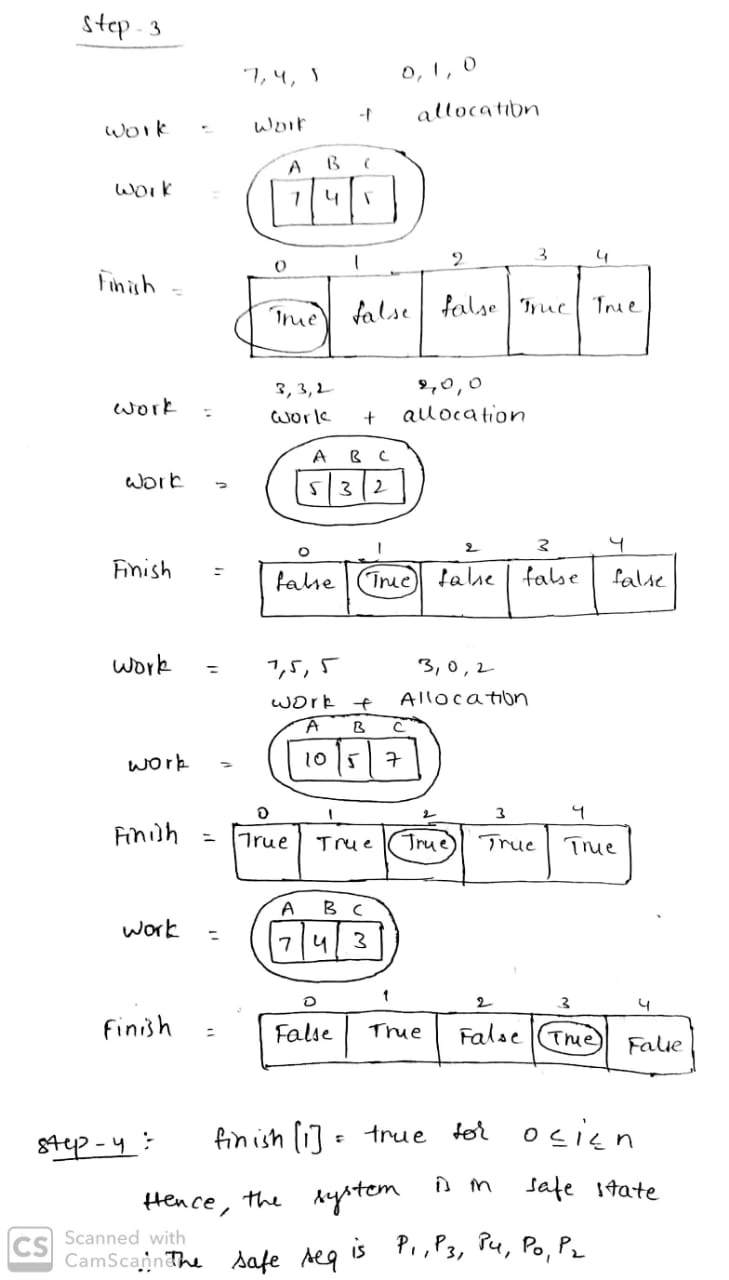 Step-3
7, 4, 5 0, 1, 0
work = work + allocation
A B C
work = 7 4 5
0 1 2 3 4
Finish = True false false True True
3, 3, 2 2, 0, 0
work = work + allocation
A B C
work = 5 3 2
0 1 2 3 4
Finish = false True false false false
work = 7, 5, 5 3, 0, 2
work + Allocation
A B C
work = 10 5 7
0 1 2 3 4
Finish = True True True True True
A B C
work = 7 4 3
0 1 2 3 4
Finish = False True False True False
step-4 : finish [i] = true for 0 ≤ i ≤ n
Hence, the system is in safe state
∴ The safe seq is P1, P3, P4, P0, P2
CS Scanned with
CamScanner